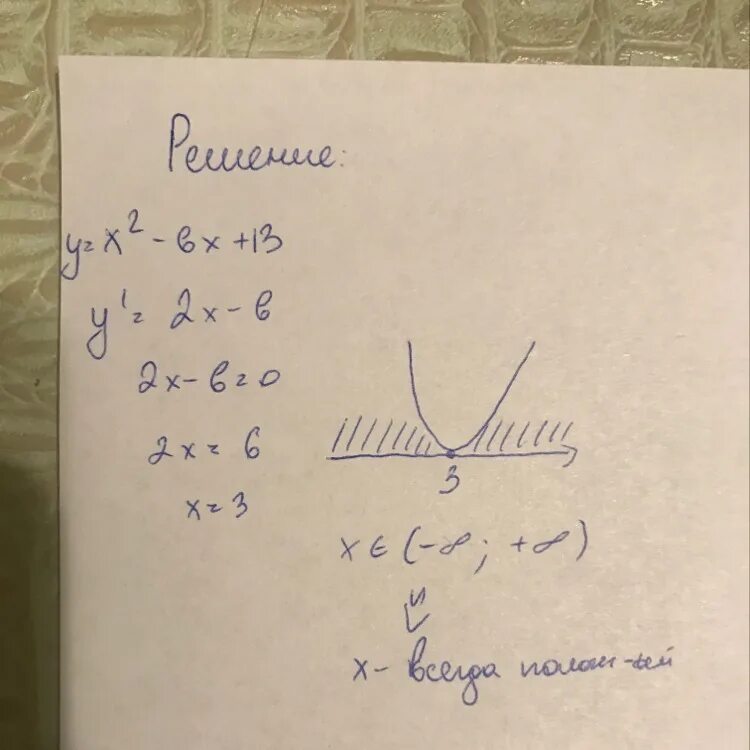 Решение:
y=x² - 6x +13
y' = 2x - 6
2x - 6 = 0
2x = 6
x = 3
3
x ∈ (-∞; +∞)
x - всегда полож-ый